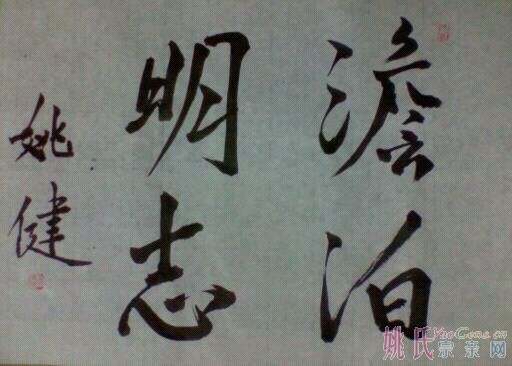 澹泊
明志
姚健
姚氏宗亲网
YaoGens.cn